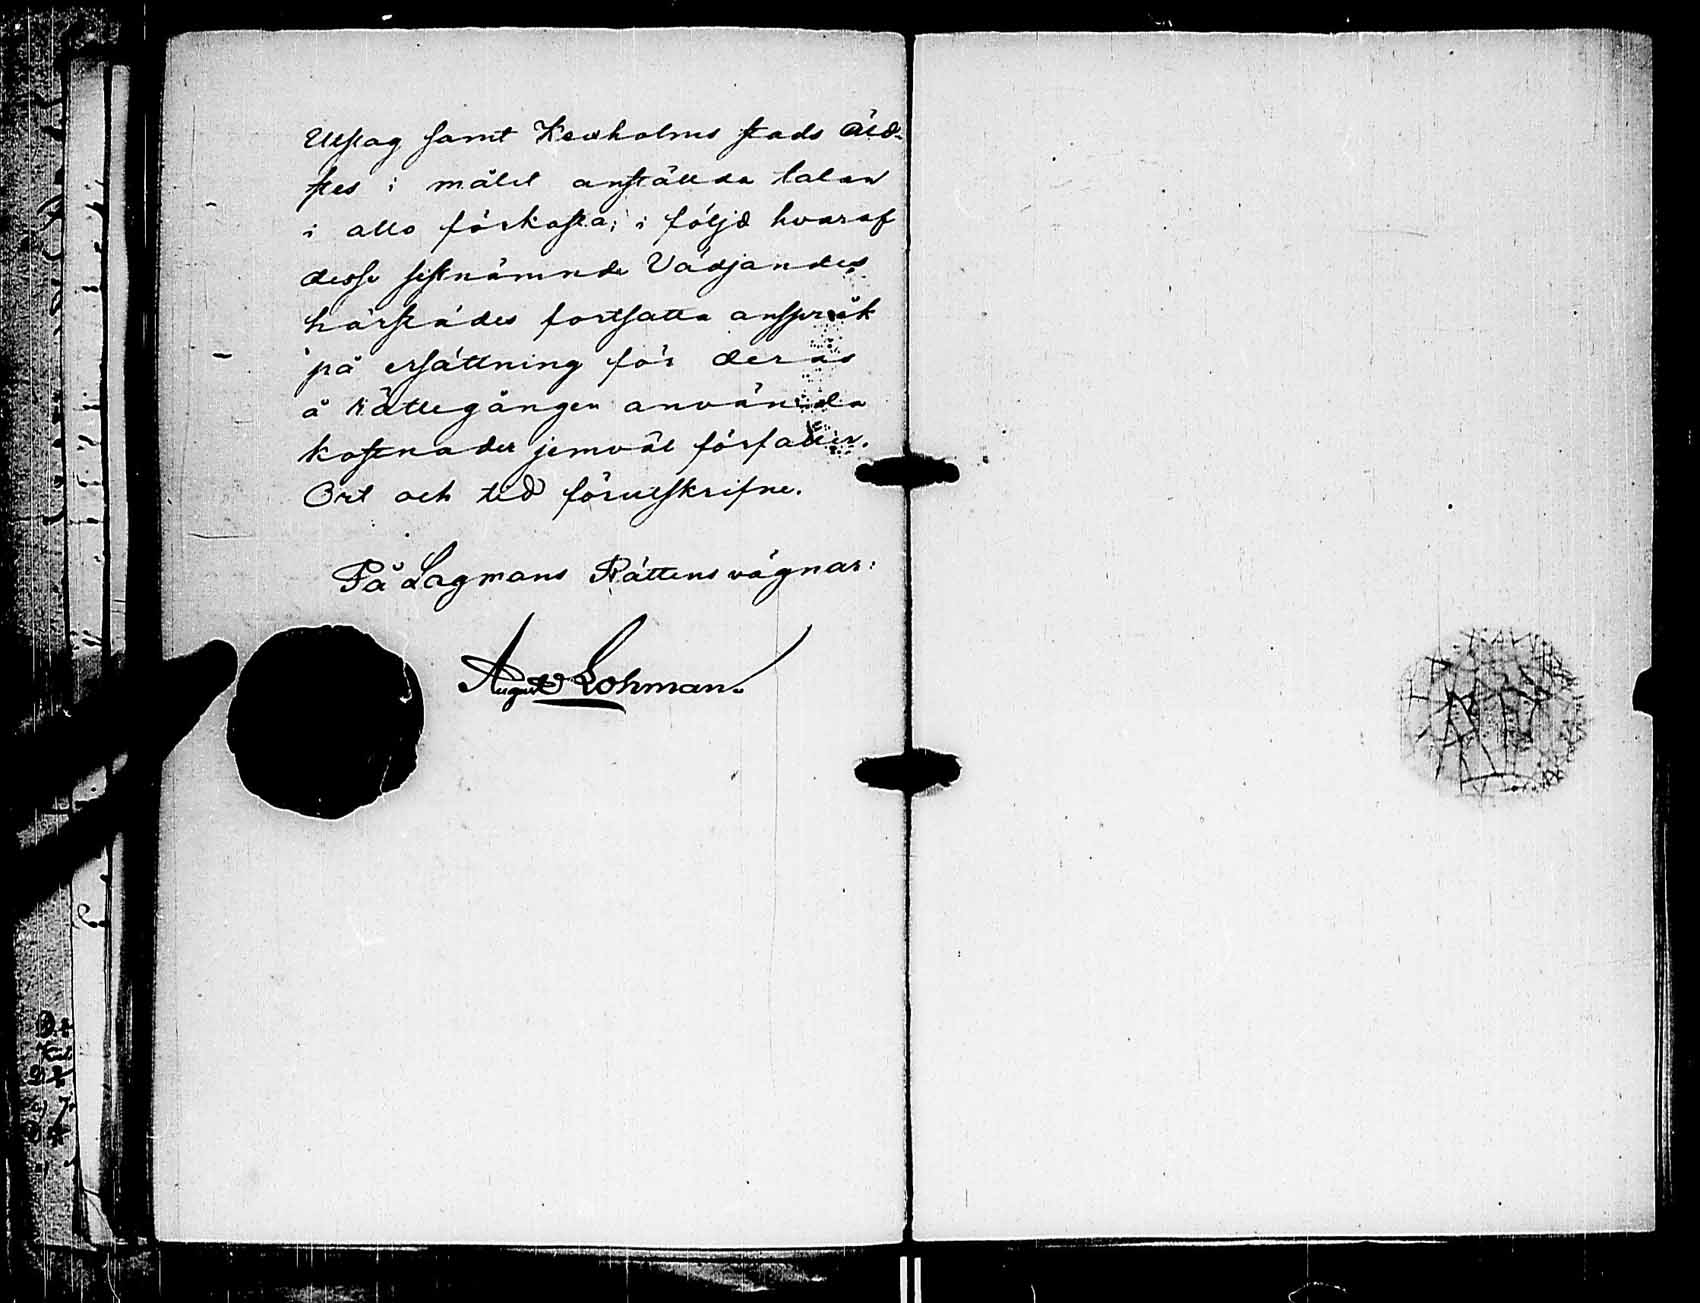 Utslag samt Kexholms stads Äld-
stes i målet anställda talan
i allo förkasta; i följd hvaraf
desse sistnämnde Vädjandes
härstädes fortsatta anspråk
på ersättning för deras
å rättegången använda
kostnader jemväl förfaller.
Ort och tid förutskrifne.
På Lagmans Rättens vägnar:
August Lohman.